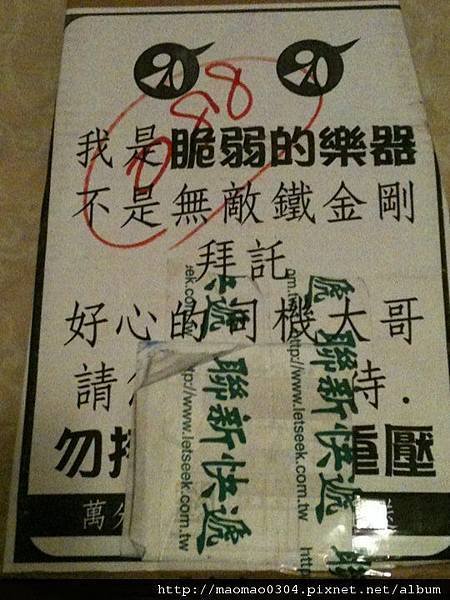 888
我是脆弱的樂器
不是無敵鐵金剛
拜託
好心的司機大哥
請 待.
勿 重壓
萬分
聯新快遞
http://www.letseek.com.tw
聯新快遞
http://www.letseek.com.tw
聯
http://maomao0304.pixnet.net/album